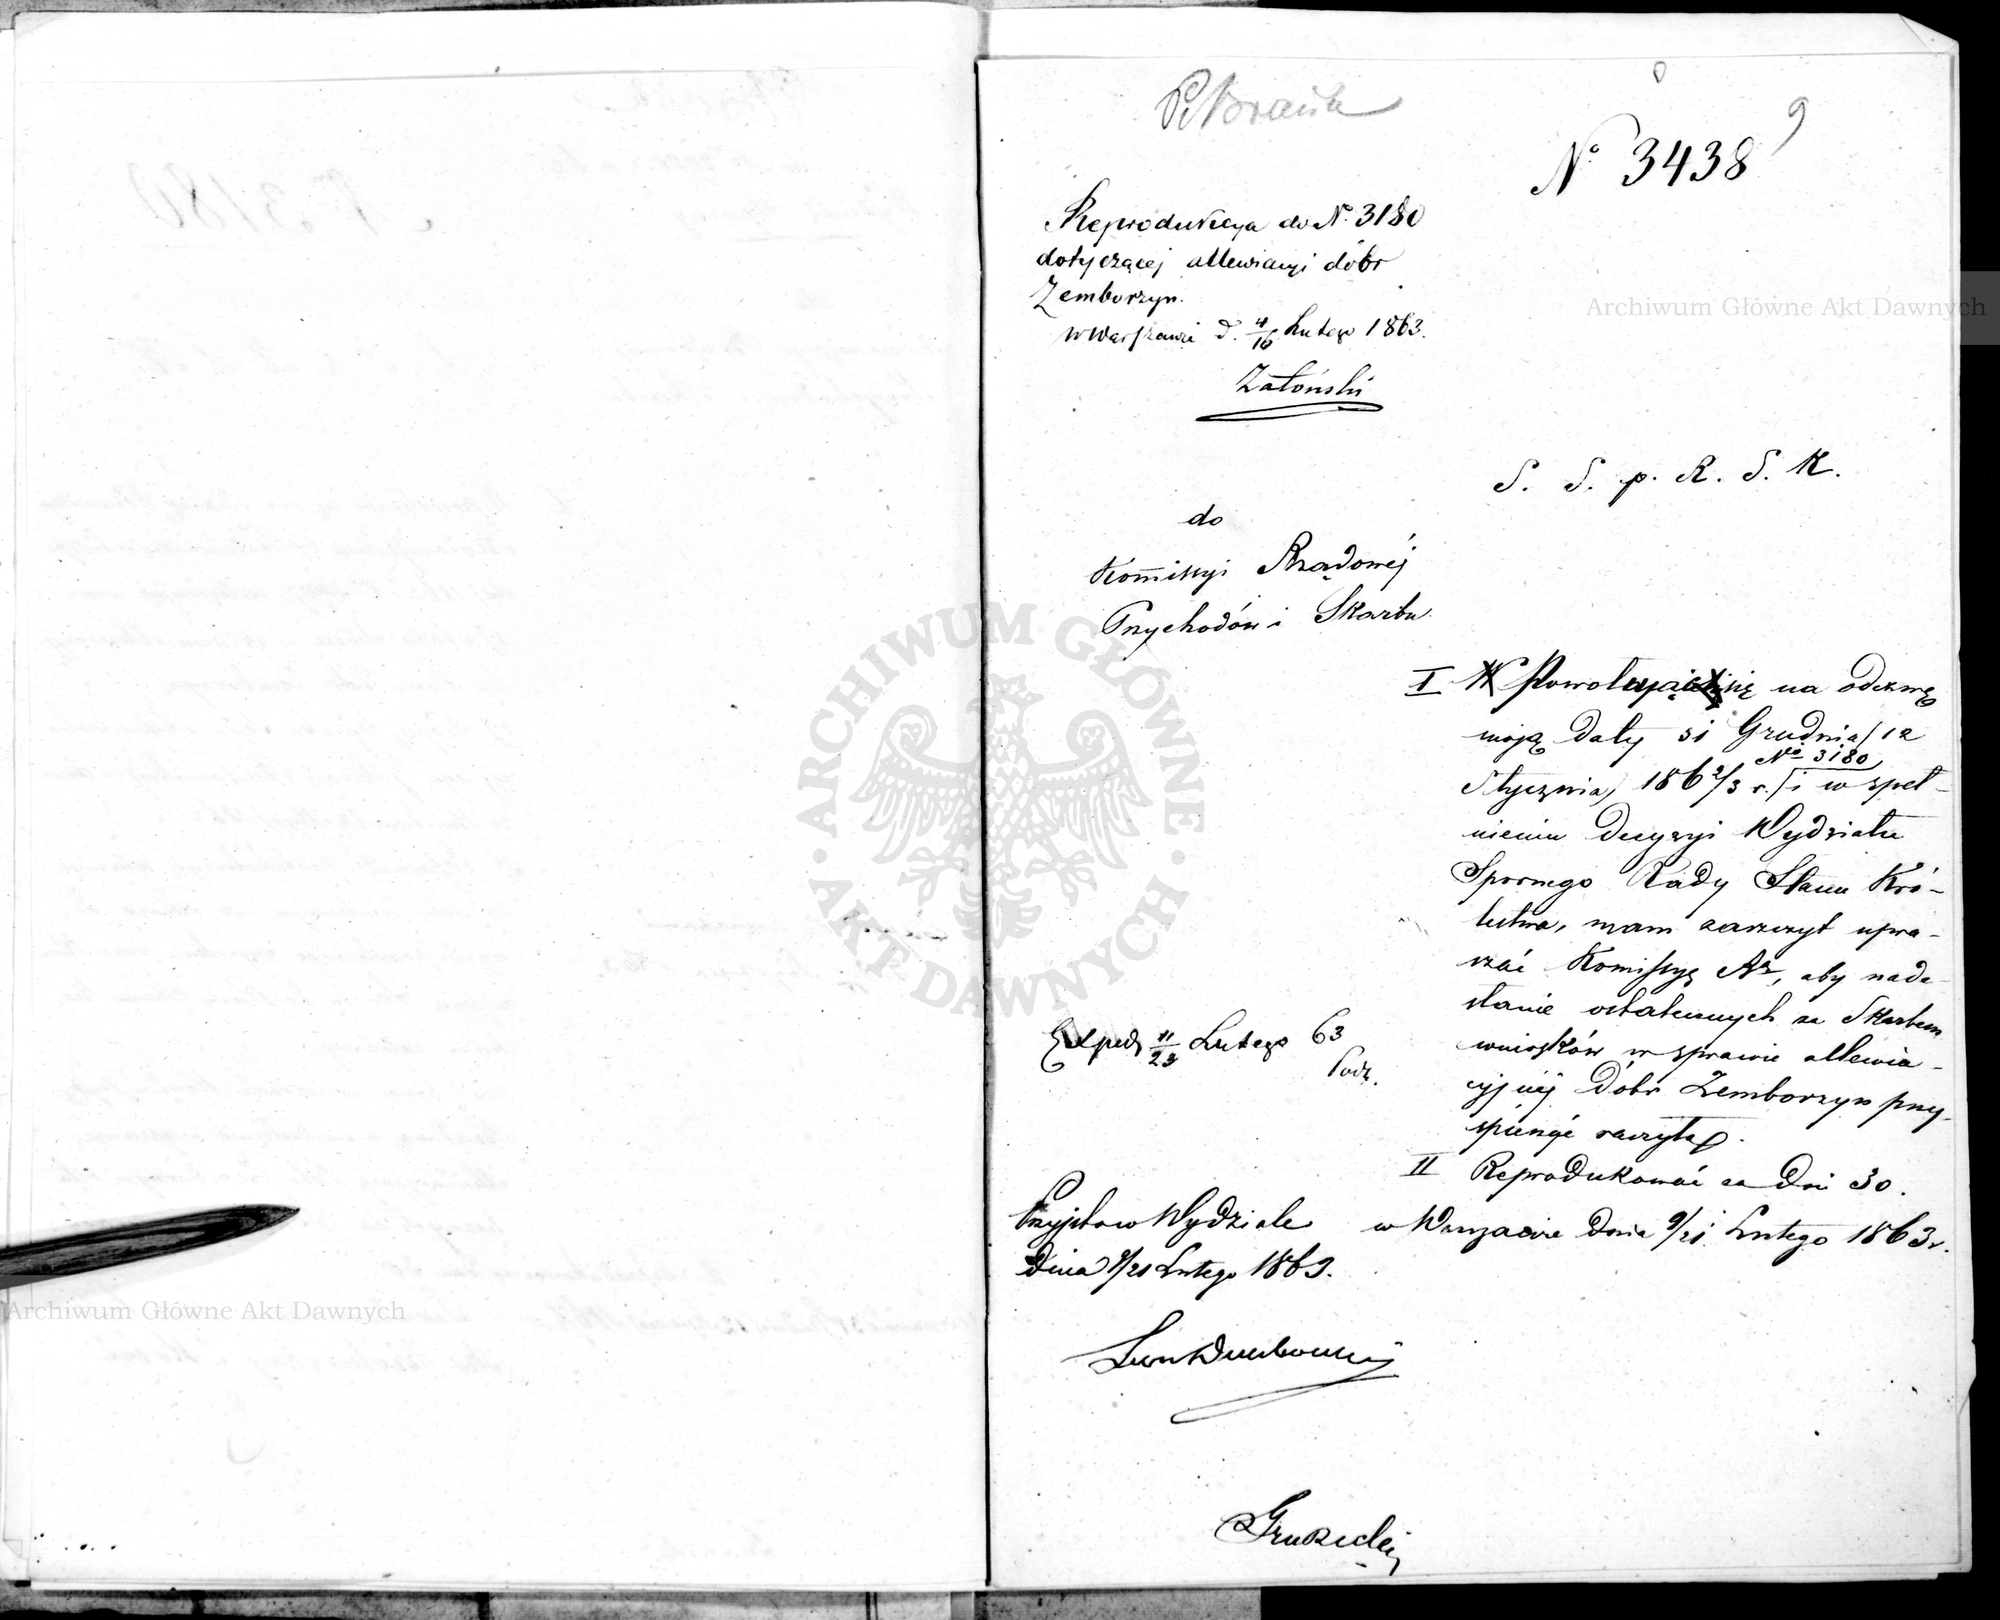 9
N° 3438
Reprodukcya do N. 3180
dotyczącej allewiacyi dóbr
Zemborzyn.
w Warszawie d. 4/16 Lutego 1863.
Zatoński
S. S. p. R. S. K.
do
Kommissyi Rządowéj
Przychodów i Skarbu
I Powołując się na odezwę
moją daty 31 Grudnia / 12
N° 3180
Stycznia 186 2/3 r. / i w speł-
nieniu decyzyi Wydziału
Spornego Rady Stanu Kró-
lestwa, mam zaszczyt upra-
szać Komissyę Rz, aby nade-
słanie ostatecznych za Skarbem
wniosków w sprawie allewia-
cyjnéj Dóbr Zemborzyn przy-
spieszyć raczyła.
II Reprodukować za Dni 30.
w Warszawie Dnia 9/21 Lutego 1863 r.
Exped 11/23 Lutego 63
Przyjęto w Wydziale
Dnia 9/21 Lutego 1863.
Archiwum Główne Akt Dawnych
Archiwum Główne Akt Dawnych
ARCHIWUM GŁÓWNE
AKT DAWNYCH